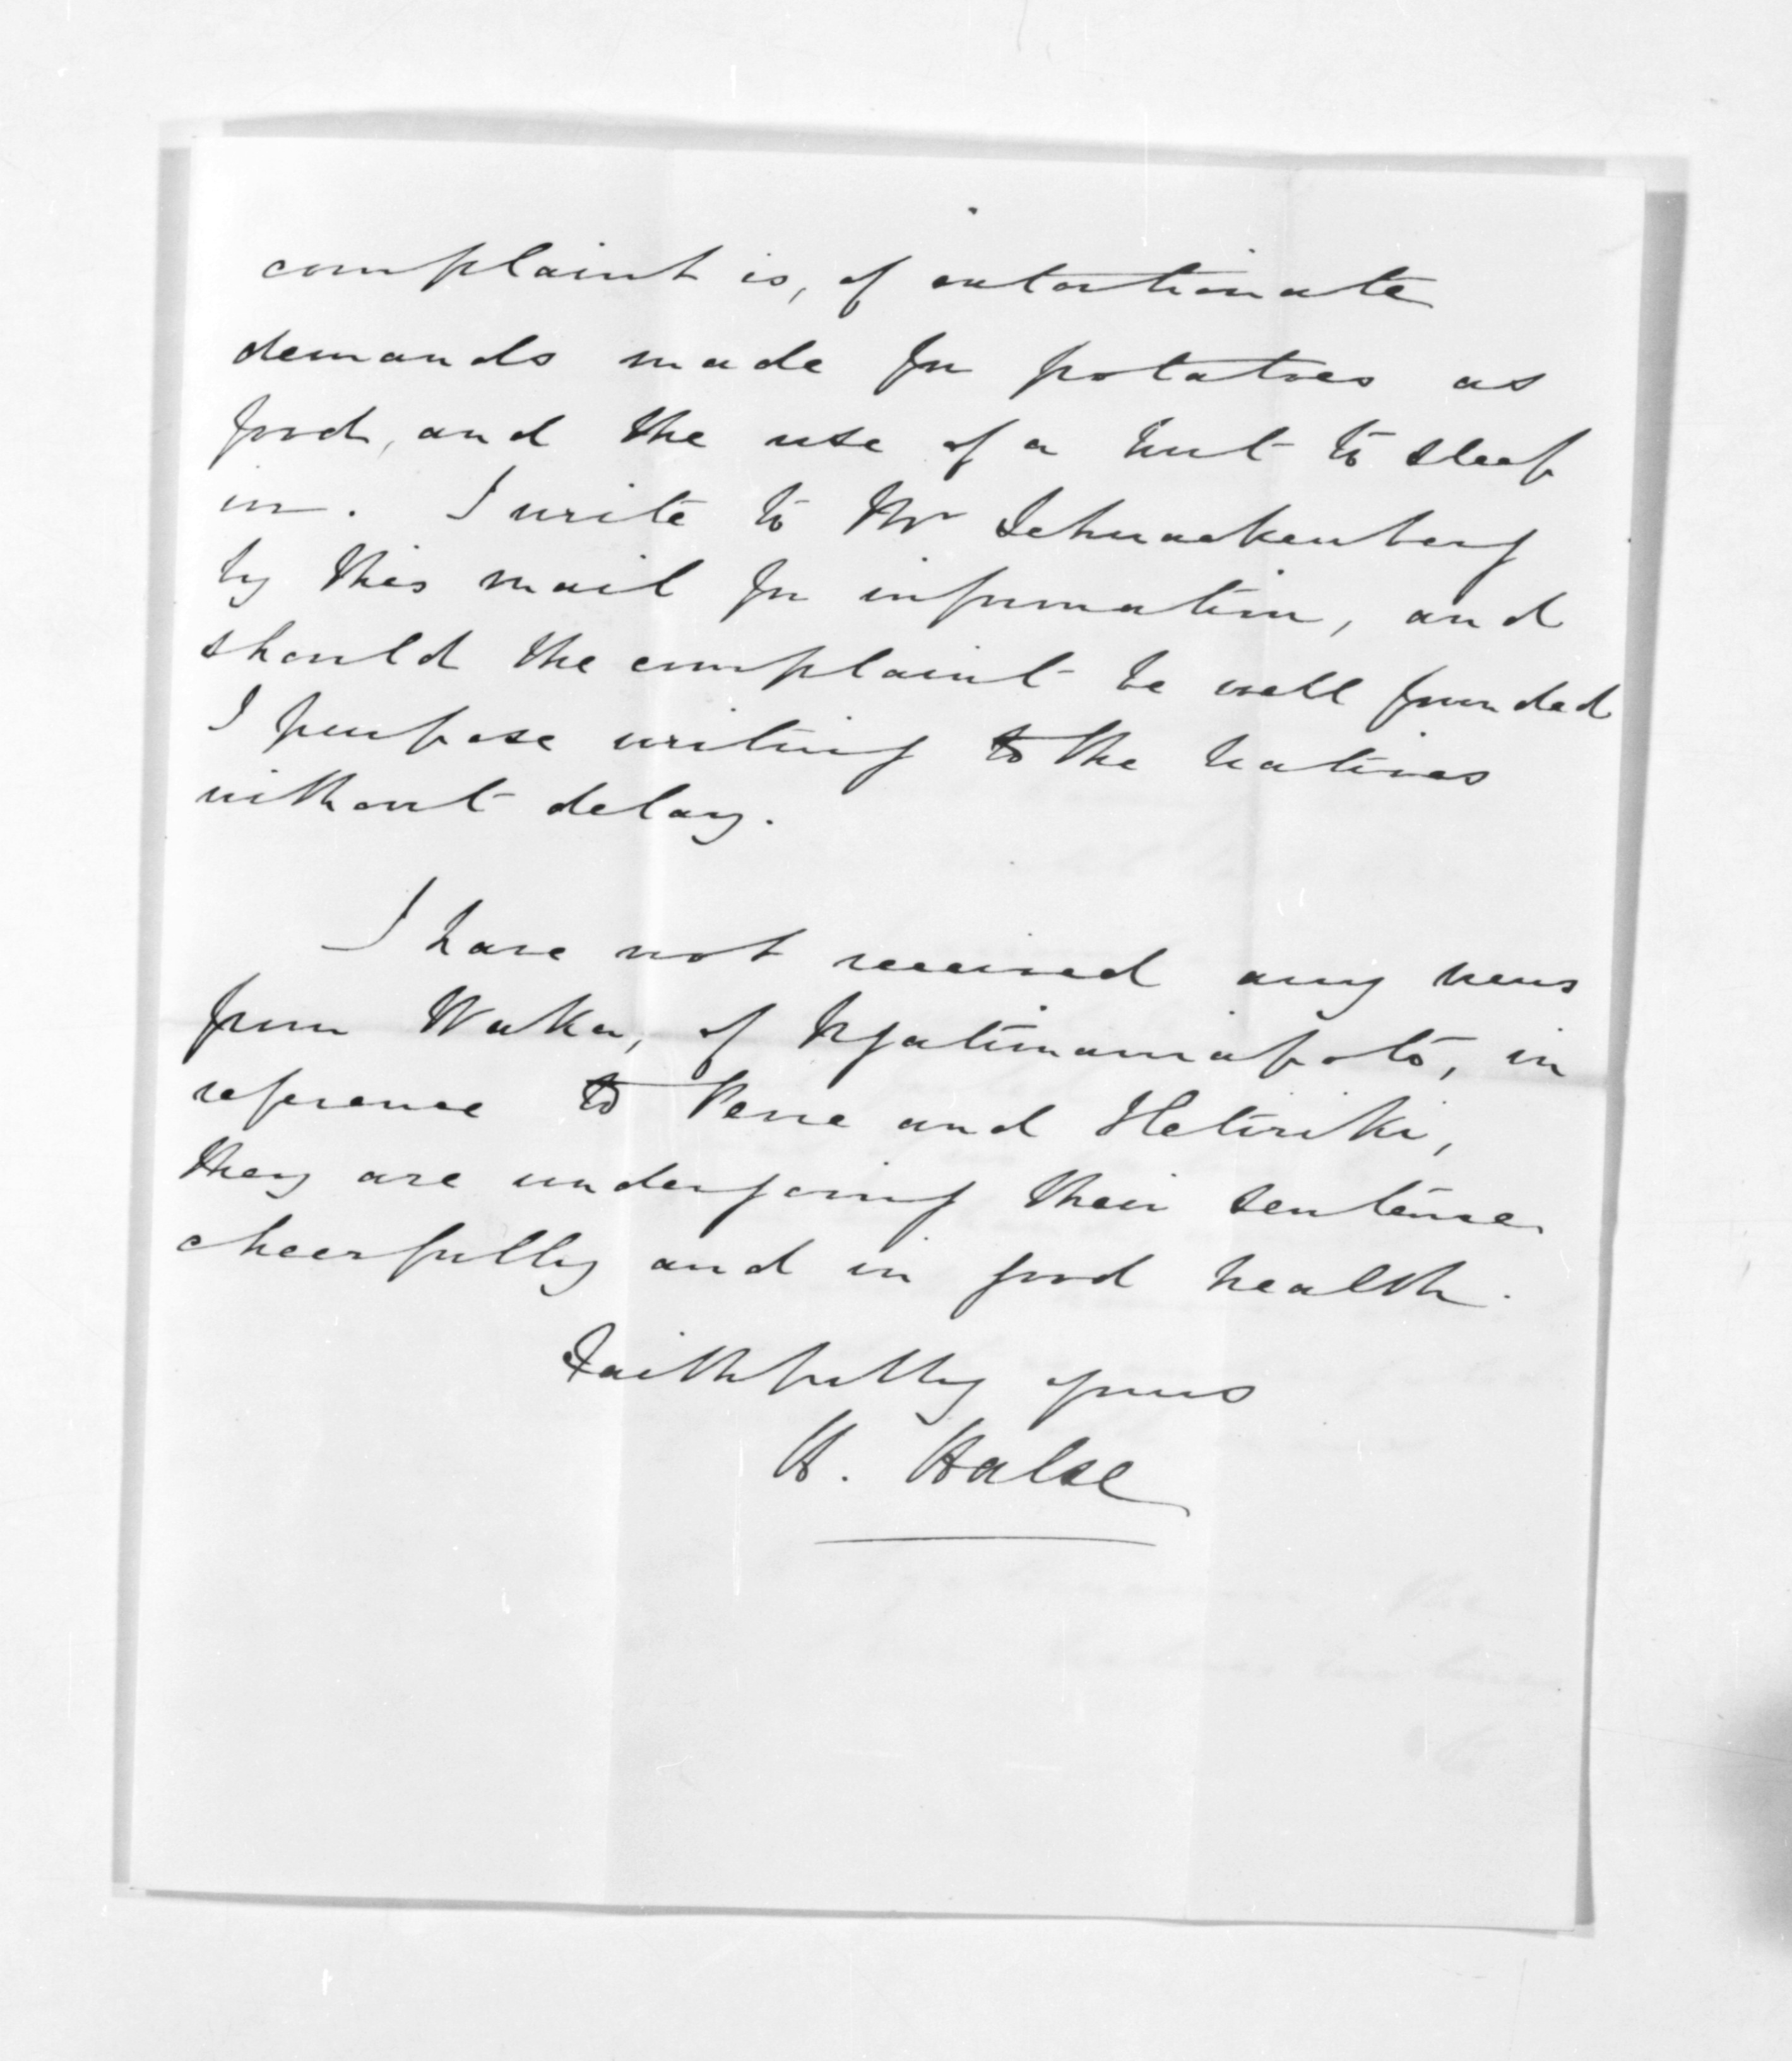 complaint is, of extortionate
demands made for potatoes as
food, and the use of a hut to sleep
in. I write to Mr Schnackenberg
by this mail for information, and
should the complaint be well founded
I purpose writing to the natives
without delay.
I have not received any news
from Waka, of Ngatimaniapoto, in
reference to Pene and Hetiriki,
they are undergoing their sentence
cheerfully and in good health.
Faithfully yours
H. Halse